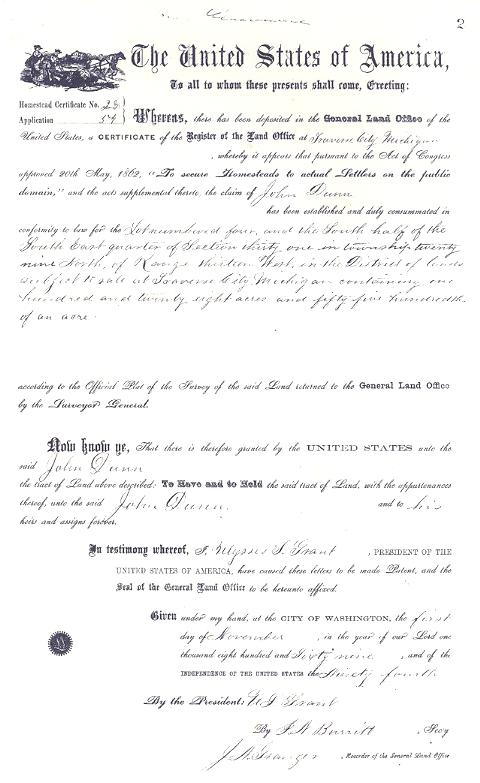 2
The United States of America,
To all to whom these presents shall come, Greeting:
Homestead Certificate No. 28
Application 34
Whereas, there has been deposited in the General Land Office of the
United States, a CERTIFICATE of the Register of the Land Office at Traverse City Michigan
, whereby it appears that pursuant to the Act of Congress
approved 20th May, 1862, "To secure Homesteads to actual Settlers on the public
domain," and the acts supplemental thereto, the claim of John Dunn
has been established and duly consummated in
conformity to law for the Lot numbered four, and the South half of the
South East quarter of Section thirty one in township twenty
nine North, of Range thirteen West, in the District of lands
subject to sale at Traverse City Michigan containing one
hundred and twenty eight acres and fifty five hundredths
of an acre
according to the Official Plat of the Survey of the said Land returned to the General Land Office
by the Surveyor General.
Now know ye, That there is therefore granted by the UNITED STATES unto the
said John Dunn
the tract of Land above described: To Have and to Hold the said tract of Land, with the appurtenances
thereof, unto the said John Dunn and to his
heirs and assigns forever.
In testimony whereof, I, Ulysses S. Grant, PRESIDENT OF THE
UNITED STATES OF AMERICA, have caused these letters to be made Patent, and the
Seal of the General Land Office to be hereunto affixed.
Given under my hand, at the CITY OF WASHINGTON, the first
day of November, in the year of our Lord one
thousand eight hundred and Sixty nine, and of the
INDEPENDENCE OF THE UNITED STATES the Ninety fourth
By the President: U.S. Grant
By , Secy
Recorder of the General Land Office